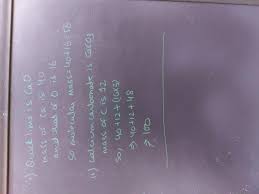 i) Quicklime is CaO
mass of Ca is 40
and that of O is 16
so molecular mass=40+16=56
ii) Calcium carbonate is CaCO3
mass of C is 12
So, 40+12+(16x3)
⇒ 40+12+48
⇒ 100